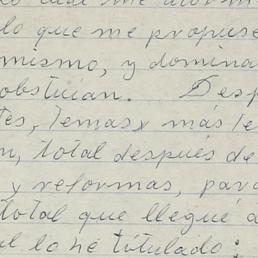 lo que me propuse
mismo, y domina
obstruían. Desp
tes, temas, más le
n, total después de
y reformas, para
total que llegué a
l lo he titulado: